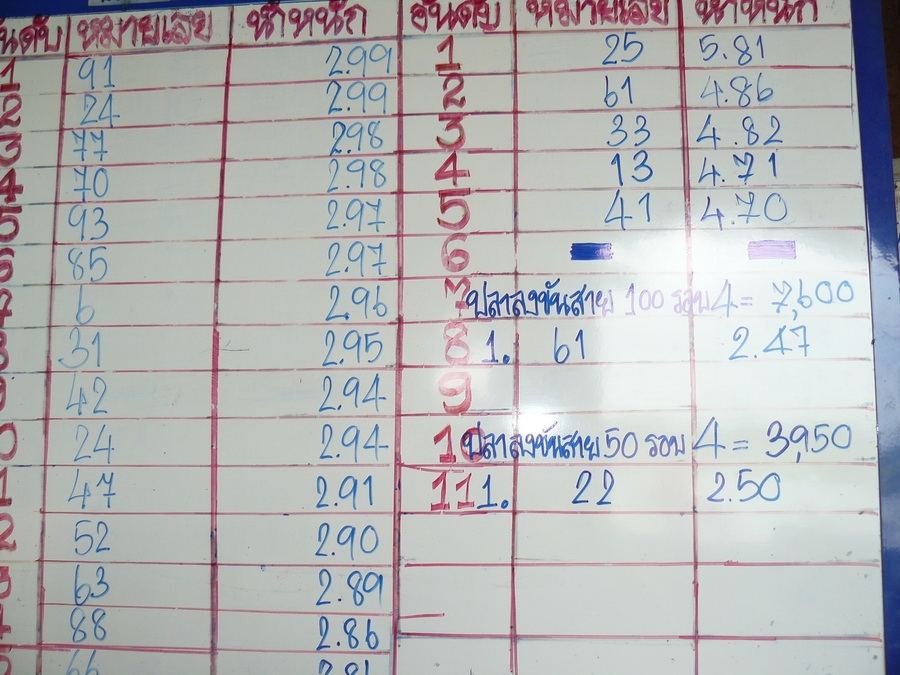 อันดับ หมายเลข น้ำหนัก
1 91 2.99
2 24 2.99
3 77 2.98
4 70 2.98
5 93 2.97
6 85 2.97
7 6 2.96
8 31 2.95
9 42 2.94
10 24 2.94
11 47 2.91
12 52 2.90
13 63 2.89
14 88 2.86
66
อันดับ หมายเลข น้ำหนัก
1 25 5.81
2 61 4.86
3 33 4.82
4 13 4.71
5 41 4.70
6
7 ปลาลงขันสาย 100 รอบ 4 = 7,600
8 1. 61 2.47
9
10 ปลาลงขันสาย 50 รอบ 4 = 3,950
11 1. 22 2.50